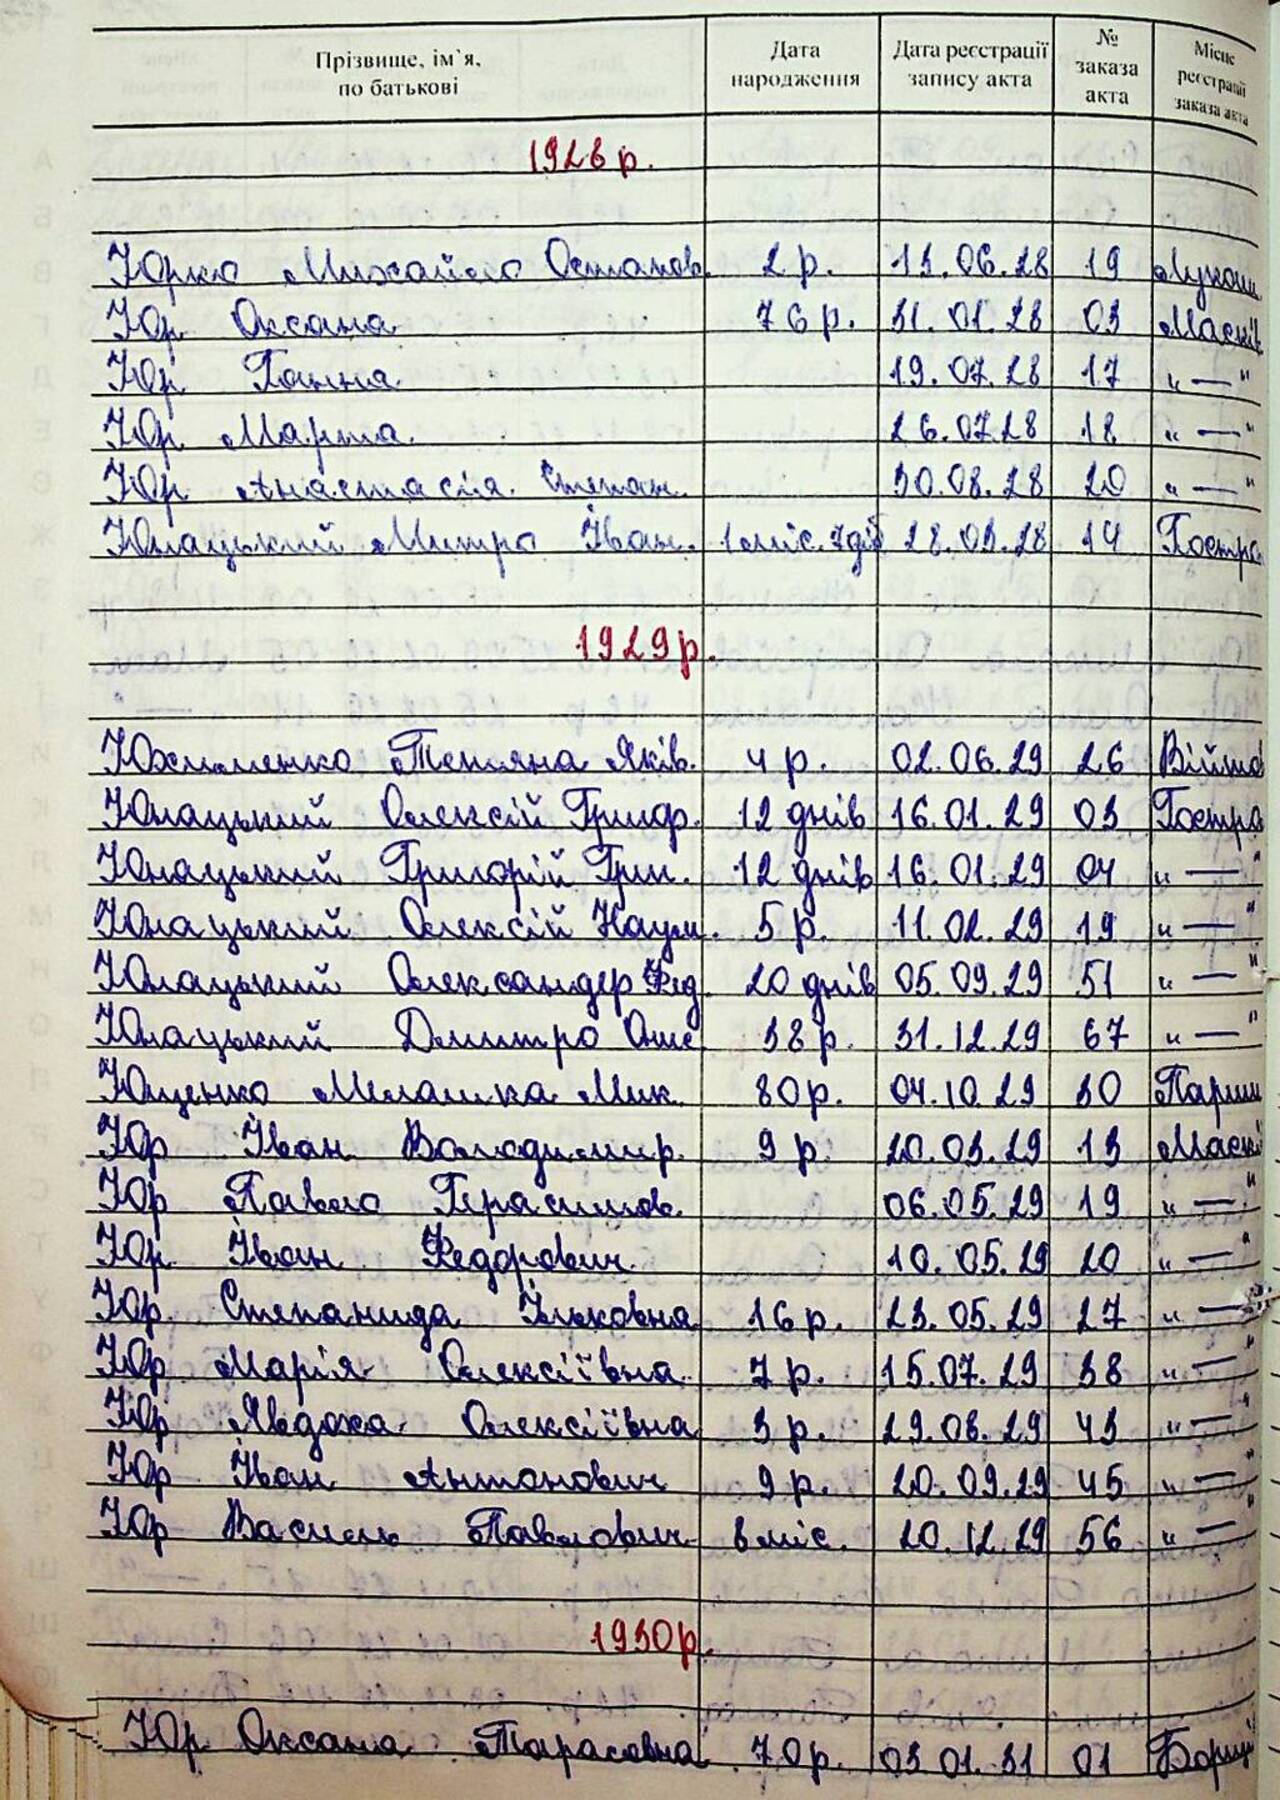 Прізвище, ім`я, по батькові Дата народження Дата реєстрації запису акта № заказа акта Місце реєстрації заказа акта
1928 р.
Юрко Михайло Остапов. 2 р. 13.06.28 19 Лукаш
Юр Оксана 76 р. 31.01.28 03 Масків
Юр Ганна 19.07.28 17 " — "
Юр Марта 26.07.28 18 " — "
Юр Анастасія Степан. 30.08.28 20 " — "
Юнацький Митро Іван. 1 міс. 7 діб 28.03.28 14 Гостра
1929 р.
Юхименко Тетяна Яків. 4 р. 02.06.29 26 Війто
Юнацький Олексій Григор. 12 днів 16.01.29 03 Гостра
Юнацький Григорій Григ. 12 днів 16.01.29 04 " — "
Юнацький Олексій Наум. 5 р. 11.02.29 19 " — "
Юнацький Олександер Фед. 20 днів 05.09.29 51 " — "
Юнацький Дмитро Онис 38 р. 31.12.29 67 " — "
Ющенко Мелашка Мик. 80 р. 04.10.29 30 Париш
Юр Іван Володимир. 9 р. 20.03.29 13 Маскі
Юр Павло Герасимов. 06.05.29 19 " — "
Юр Іван Федорович 10.05.29 20 " — "
Юр Степанида Ільковна 16 р. 23.05.29 27 " — "
Юр Марія Олексіївна 7 р. 15.07.29 38 " — "
Юр Явдоха Олексіївна 3 р. 29.08.29 43 " — "
Юр Іван Антонович 9 р. 20.09.29 45 " — "
Юр Василь Павлович 8 міс. 20.12.29 56 " — "
1930 р.
Юр Оксана Тарасовна 70 р. 03.01.31 01